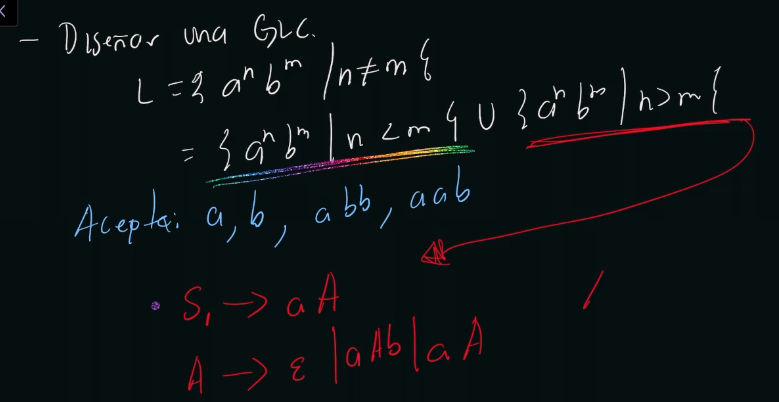 - Diseñar una GLC.
L = { aⁿ bᵐ / n ≠ m {
= { aⁿ bᵐ | n < m { ∪ { aⁿ bᵐ | n > m {
Acepta: a, b, abb, aab
• S₁ → aA
A → ε | aAb | aA